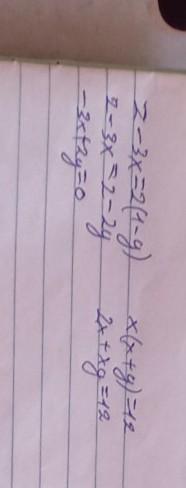 2-3x=2(1-y)
2-3x=2-2y
-3x+2y=0
x(x+y)=12
2x+xy=12